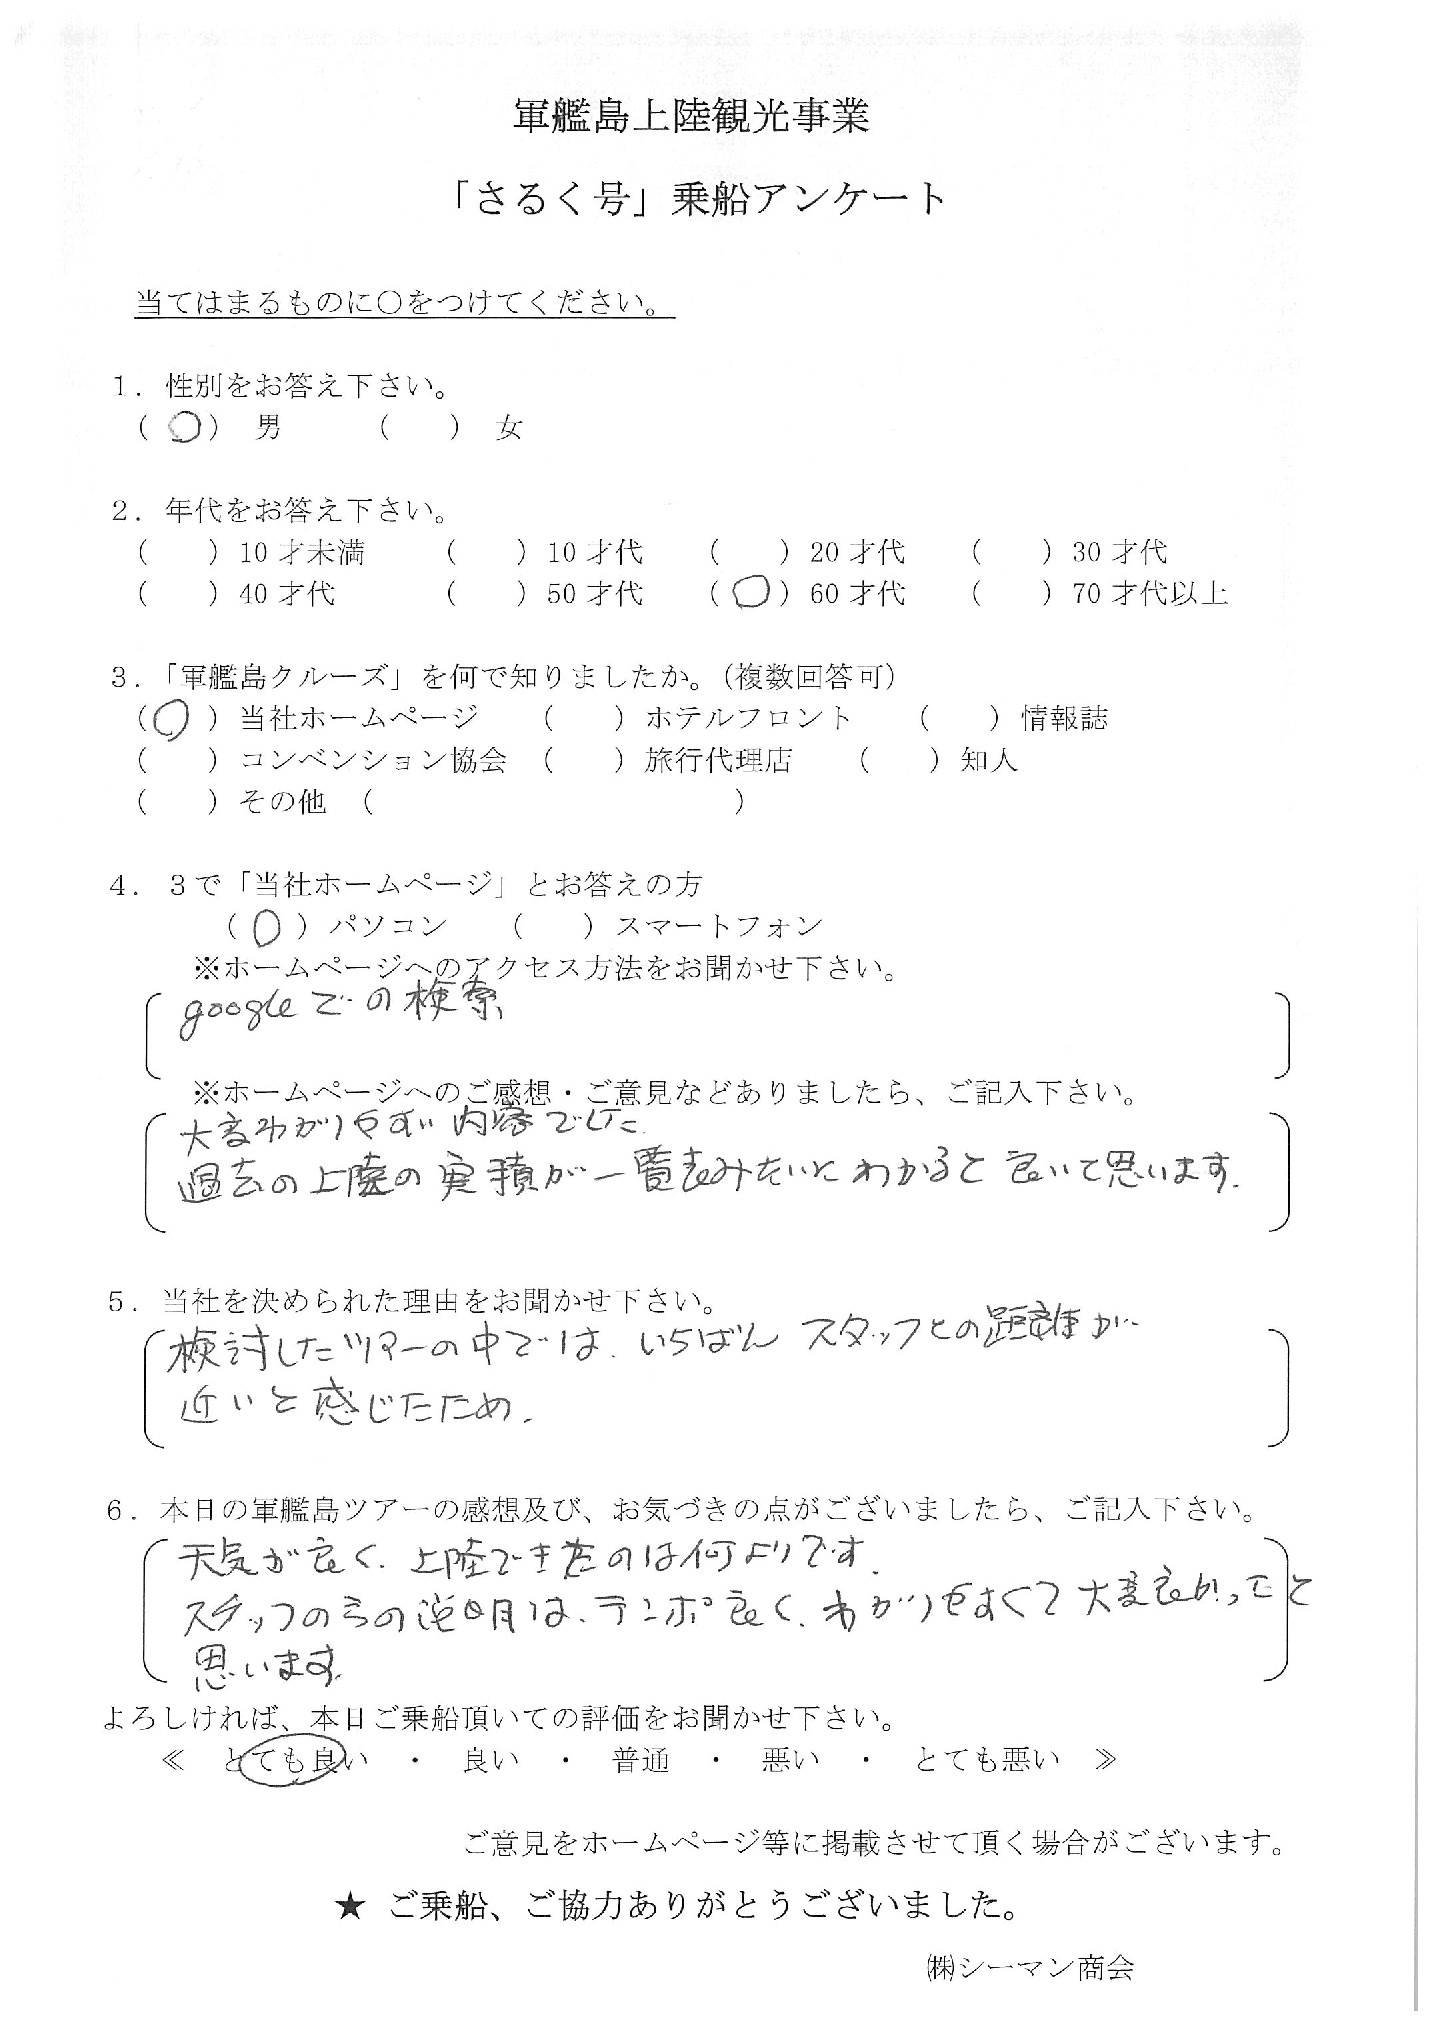 軍艦島上陸観光事業
「さるく号」乗船アンケート
当てはまるものに〇をつけてください。
１．性別をお答え下さい。
（ 〇 ） 男 （ ） 女
２．年代をお答え下さい。
（ ）10才未満 （ ）10才代 （ ）20才代 （ ）30才代
（ ）40才代 （ ）50才代 （ 〇 ）60才代 （ ）70才代以上
３．「軍艦島クルーズ」を何で知りましたか。（複数回答可）
（ 〇 ）当社ホームページ （ ）ホテルフロント （ ）情報誌
（ ）コンベンション協会 （ ）旅行代理店 （ ）知人
（ ）その他 （ ）
４．３で「当社ホームページ」とお答えの方
（ 〇 ）パソコン （ ）スマートフォン
※ホームページへのアクセス方法をお聞かせ下さい。
googleでの検索
※ホームページへのご感想・ご意見などありましたら、ご記入下さい。
大変わかりやすい内容でした
過去の上陸の実積が一覧表みたいにわかると良いと思います.
５．当社を決められた理由をお聞かせ下さい。
検討したツアーの中では、いちばん スタッフとの距離が
近いと感じたため.
６．本日の軍艦島ツアーの感想及び、お気づきの点がございましたら、ご記入下さい。
天気が良く、上陸できたのは何よりです.
スタッフの方の説明は、テンポ良く、わかりやすくて大変良かったと
思います.
よろしければ、本日ご乗船頂いての評価をお聞かせ下さい。
≪ とても良い ・ 良い ・ 普通 ・ 悪い ・ とても悪い ≫
ご意見をホームページ等に掲載させて頂く場合がございます。
★ ご乗船、ご協力ありがとうございました。
㈱シーマン商会